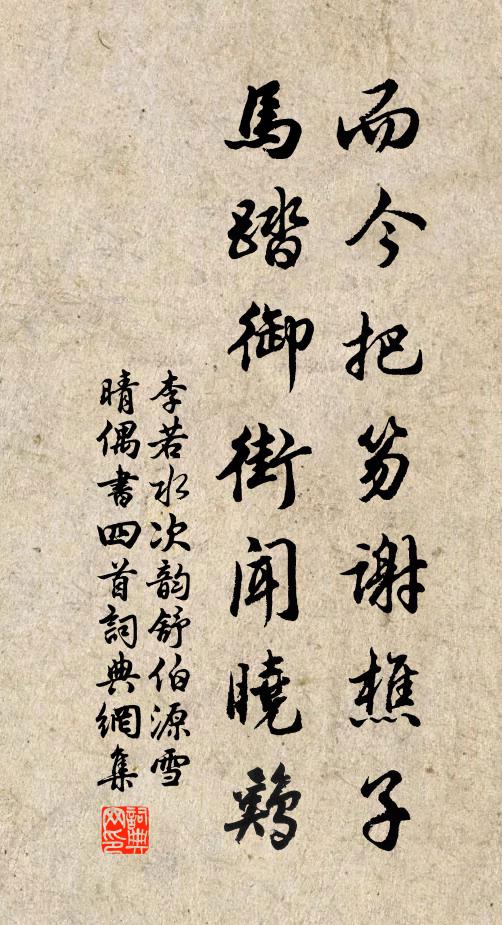 而今把笏謝樵子
馬踏御街聞曉鷄
李若水次韵舒伯源雪
晴偶書四首詞典網集
詞典
网印